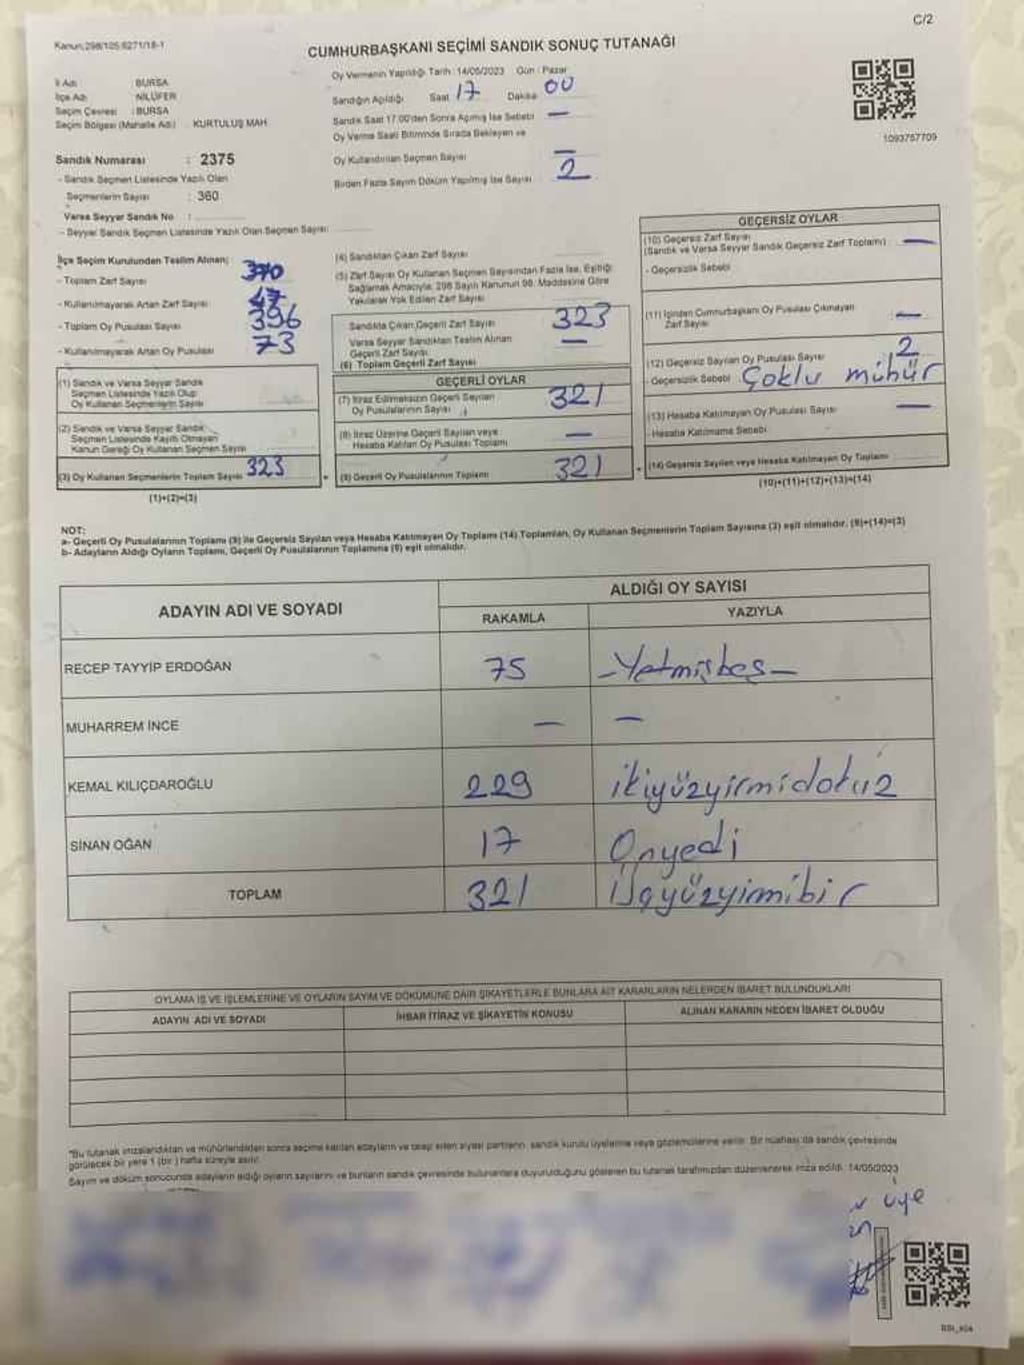 C/2
Kanun:298/105.6271/18-1
CUMHURBAŞKANI SEÇİMİ SANDIK SONUÇ TUTANAĞI
İl Adı : BURSA
İlçe Adı : NİLÜFER
Seçim Çevresi : BURSA
Seçim Bölgesi (Mahalle Adı) : KURTULUŞ MAH.
Sandık Numarası : 2375
- Sandık Seçmen Listesinde Yazılı Olan
Seçmenlerin Sayısı : 360
Varsa Seyyar Sandık No :
- Seyyar Sandık Seçmen Listesinde Yazılı Olan Seçmen Sayısı:
Oy Vermenin Yapıldığı Tarih : 14/05/2023 Gün : Pazar
Sandığın Açıldığı Saat 17 Dakika 00
Sandık Saat 17.00'den Sonra Açılmış İse Sebebi —
Oy Verme Saati Bitiminde Sırada Bekleyen ve
Oy Kullandırılan Seçmen Sayısı —
Birden Fazla Sayım Döküm Yapılmış İse Sayısı 2
1093757709
İlçe Seçim Kurulundan Teslim Alınan;
- Toplam Zarf Sayısı 370
- Kullanılmayarak Artan Zarf Sayısı 47
- Toplam Oy Pusulası Sayısı 396
- Kullanılmayarak Artan Oy Pusulası 73
(1) Sandık ve Varsa Seyyar Sandık
Seçmen Listesinde Yazılı Olup
Oy Kullanan Seçmenlerin Sayısı
(2) Sandık ve Varsa Seyyar Sandık
Seçmen Listesinde Kayıtlı Olmayan
Kanun Gereği Oy Kullanan Seçmen Sayısı
(3) Oy Kullanan Seçmenlerin Toplam Sayısı 323
(1)+(2)=(3)
(4) Sandıktan Çıkan Zarf Sayısı
(5) Zarf Sayısı Oy Kullanan Seçmen Sayısından Fazla İse, Eşitliği
Sağlamak Amacıyla, 298 Sayılı Kanunun 98. Maddesine Göre
Yakılarak Yok Edilen Zarf Sayısı
Sandıkta Çıkan Geçerli Zarf Sayısı 323
Varsa Seyyar Sandıktan Teslim Alınan
Geçerli Zarf Sayısı —
(6) Toplam Geçerli Zarf Sayısı
GEÇERLİ OYLAR
(7) İtiraz Edilmeksizin Geçerli Sayılan
Oy Pusulalarının Sayısı 321
(8) İtiraz Üzerine Geçerli Sayılan veya
Hesaba Katılan Oy Pusulası Toplamı —
(9) Geçerli Oy Pusulalarının Toplamı 321
GEÇERSİZ OYLAR
(10) Geçersiz Zarf Sayısı
(Sandık ve Varsa Seyyar Sandık Geçersiz Zarf Toplamı) —
- Geçersizlik Sebebi
(11) İçinden Cumhurbaşkanı Oy Pusulası Çıkmayan
Zarf Sayısı —
(12) Geçersiz Sayılan Oy Pusulası Sayısı 2
- Geçersizlik Sebebi Çoklu mühür
(13) Hesaba Katılmayan Oy Pusulası Sayısı —
- Hesaba Katılmama Sebebi
(14) Geçersiz Sayılan veya Hesaba Katılmayan Oy Toplamı
(10)+(11)+(12)+(13)=(14)
NOT:
a- Geçerli Oy Pusulalarının Toplamı (9) ile Geçersiz Sayılan veya Hesaba Katılmayan Oy Toplamı (14) Toplamları, Oy Kullanan Seçmenlerin Toplam Sayısına (3) eşit olmalıdır. (9)+(14)=(3)
b- Adayların Aldığı Oyların Toplamı, Geçerli Oy Pusulalarının Toplamına (9) eşit olmalıdır.
ADAYIN ADI VE SOYADI
ALDIĞI OY SAYISI
RAKAMLA YAZIYLA
RECEP TAYYİP ERDOĞAN 75 -Yetmişbeş-
MUHARREM İNCE — —
KEMAL KILIÇDAROĞLU 229 ikiyüzyirmidokuz
SİNAN OĞAN 17 Onyedi
TOPLAM 321 Üçyüzyirmibir
OYLAMA İŞ VE İŞLEMLERİNE VE OYLARIN SAYIM VE DÖKÜMÜNE DAİR ŞİKAYETLERLE BUNLARA AİT KARARLARIN NELERDEN İBARET BULUNDUKLARI
ADAYIN ADI VE SOYADI İHBAR İTİRAZ VE ŞİKAYETİN KONUSU ALINAN KARARIN NEDEN İBARET OLDUĞU
"Bu tutanak imzalandıktan ve mühürlendikten sonra seçime katılan adayların ve talep eden siyasi partilerin, sandık kurulu üyelerine veya gözlemcilerine verilir. Bir nüshası da sandık çevresinde
görülecek bir yere 1 (bir ) hafta süreyle asılır.
Sayım ve döküm sonucunda adayların aldığı oyların sayılarını ve bunların sandık çevresinde bulunanlara duyurulduğunu gösteren bu tutanak tarafımızdan düzenlenerek imza edildi. 14/05/2023
üye